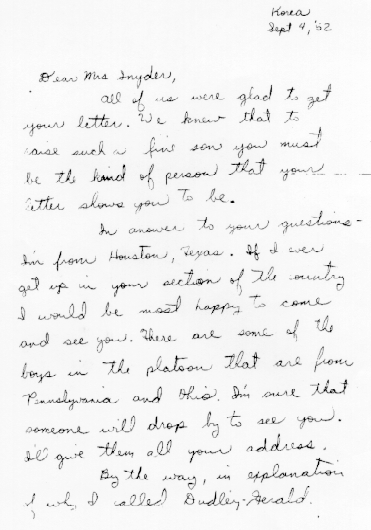 Korea
Sept 4, '52
Dear Mrs Snyder,
All of us were glad to get
your letter. We knew that to
raise such a fine son you must
be the kind of person that your
letter shows you to be.
In answer to your questions-
I'm from Houston, Texas. If I ever
get up in your section of the country
I would be most happy to come
and see you. There are some of the
boys in the platoon that are from
Pennslyvania and Ohio. I'm sure that
someone will drop by to see you.
I'll give them all your address.
By the way, in explanation
of why I called Dudley-Gerald.